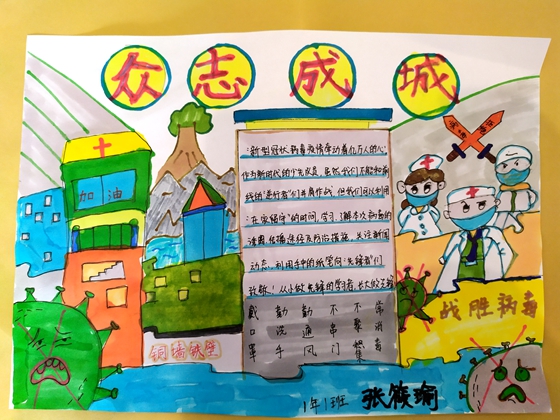 众志成城
加油
新型冠状病毒疫情牵动着亿万人的心,
作为新时代的少先队员,虽然我们不能和前
线的"逆行者"们并肩作战,但我们可以利用
"在家留守"的时间,学习了解本次病毒的
传播途径及防治措施,关注新闻
动态,利用手中的纸笔向"先锋者"们
致敬!从小做先锋的学习者,长大做
戴口罩
勤洗手
勤通风
不串门
不聚集
常消毒
铜墙铁壁
战胜病毒
1年1班
张筱瑜